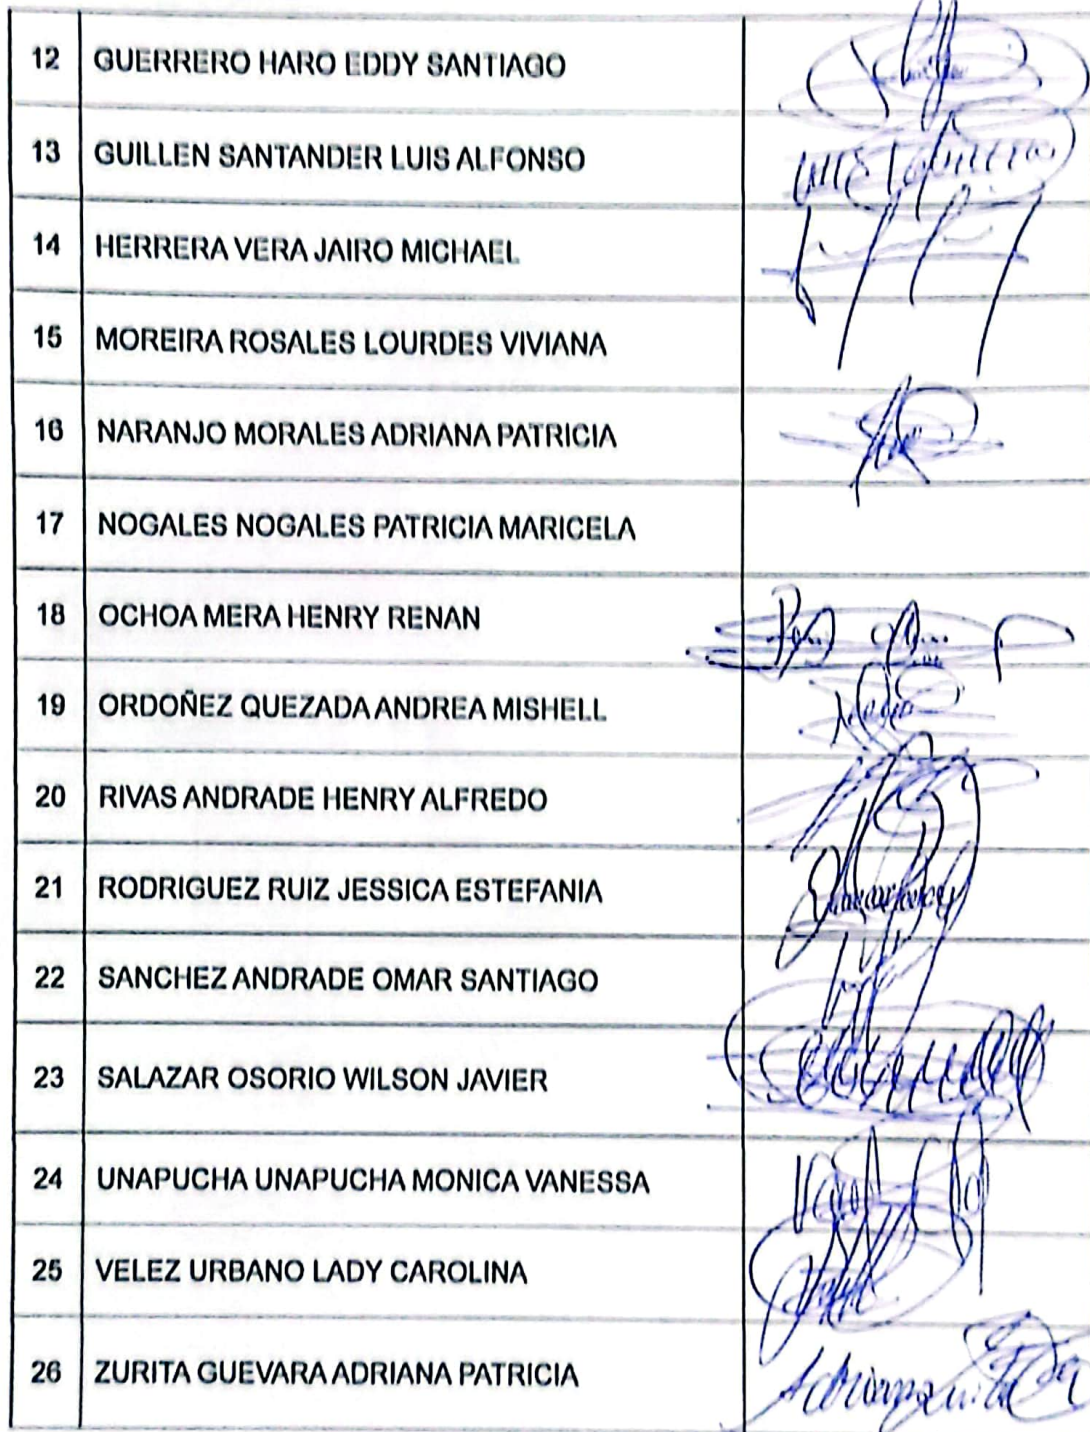 12 GUERRERO HARO EDDY SANTIAGO
13 GUILLEN SANTANDER LUIS ALFONSO
14 HERRERA VERA JAIRO MICHAEL
15 MOREIRA ROSALES LOURDES VIVIANA
16 NARANJO MORALES ADRIANA PATRICIA
17 NOGALES NOGALES PATRICIA MARICELA
18 OCHOA MERA HENRY RENAN
19 ORDOÑEZ QUEZADA ANDREA MISHELL
20 RIVAS ANDRADE HENRY ALFREDO
21 RODRIGUEZ RUIZ JESSICA ESTEFANIA
22 SANCHEZ ANDRADE OMAR SANTIAGO
23 SALAZAR OSORIO WILSON JAVIER
24 UNAPUCHA UNAPUCHA MONICA VANESSA
25 VELEZ URBANO LADY CAROLINA
26 ZURITA GUEVARA ADRIANA PATRICIA